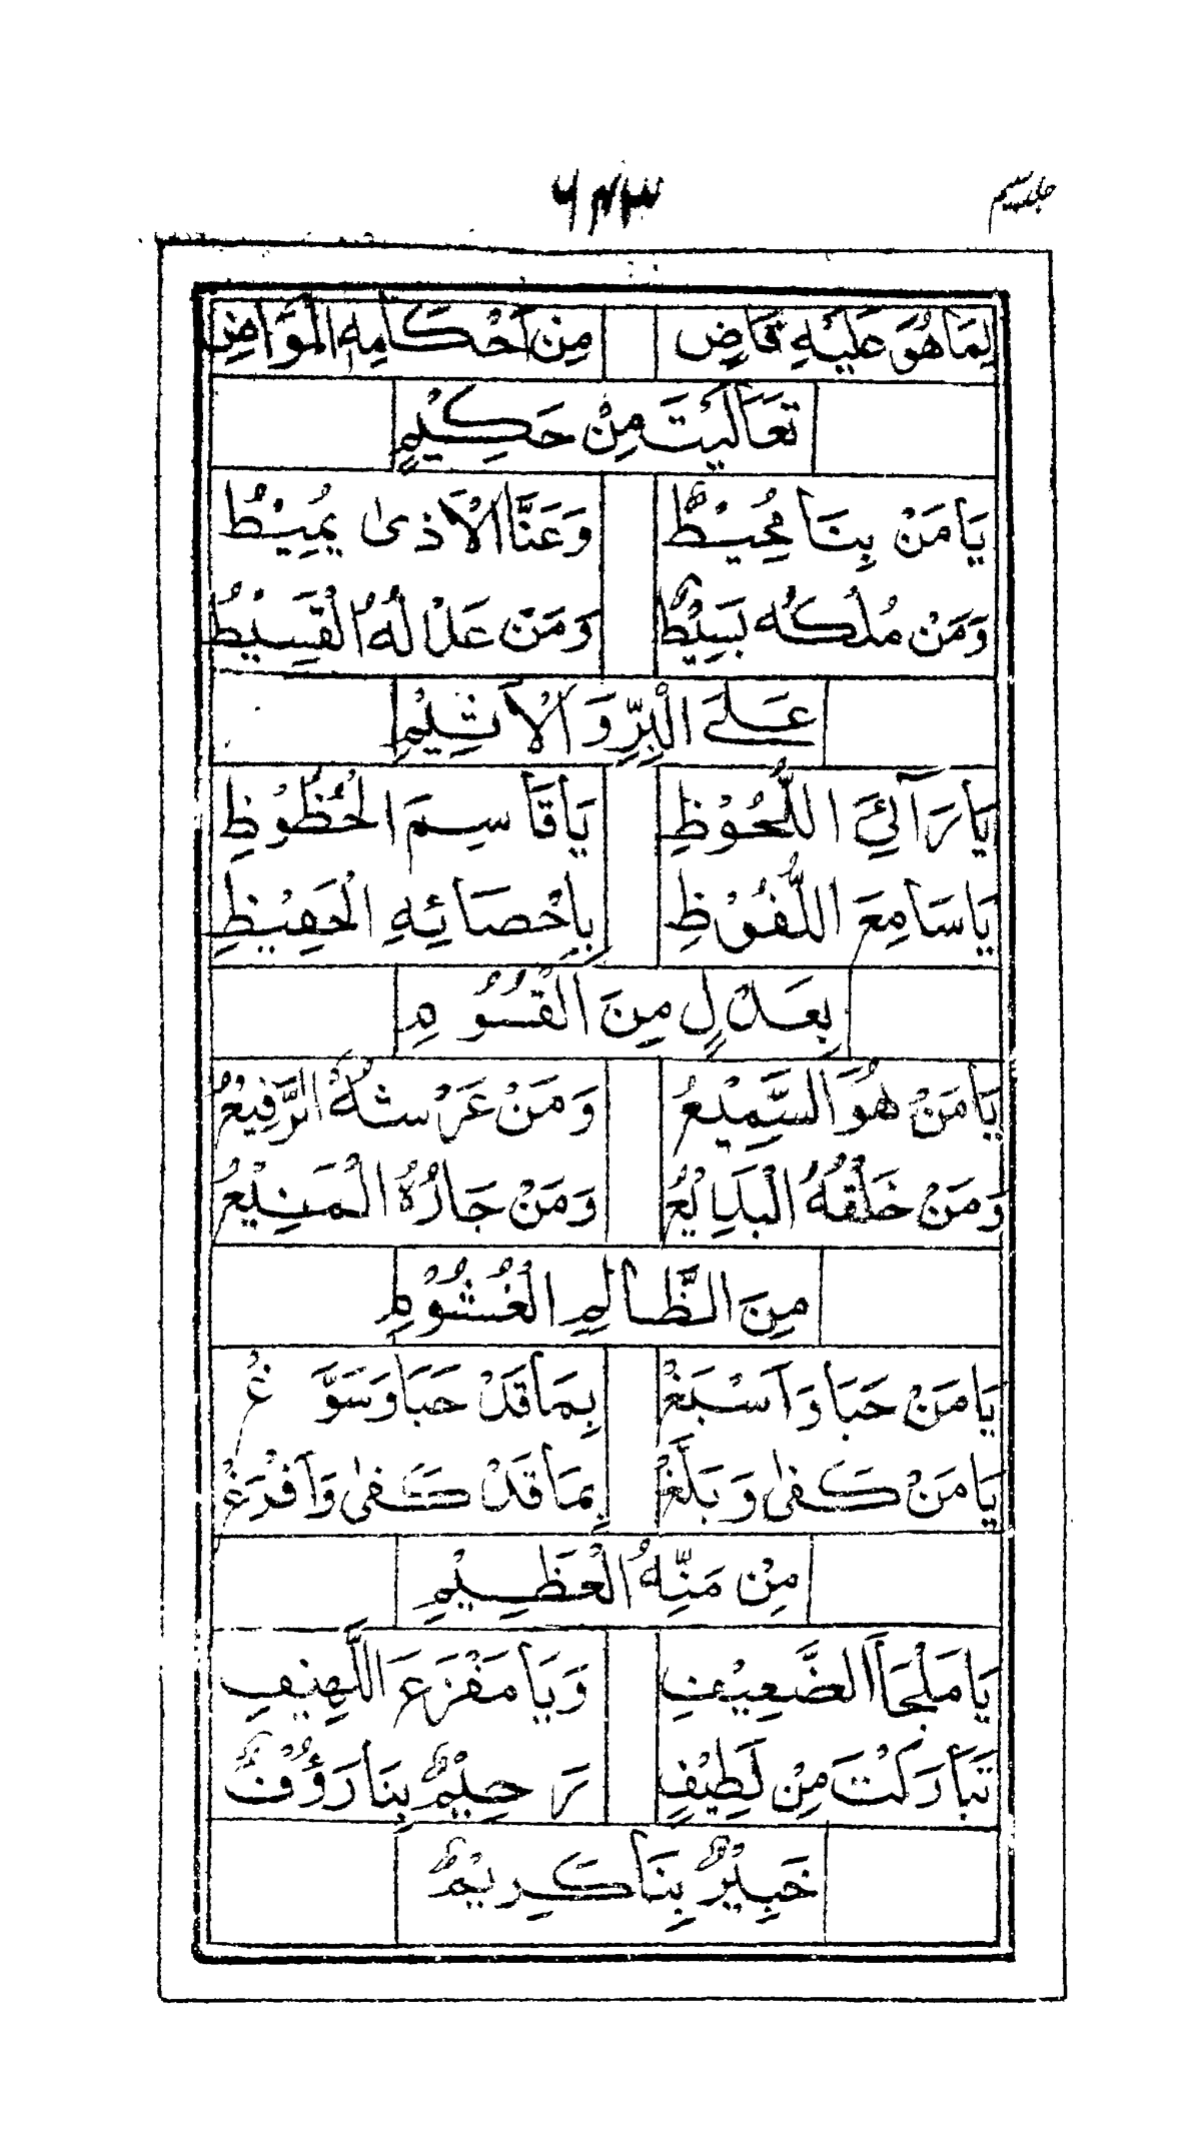 جلد سیم
۶۴۳
لِمَا هُوَ عَلَيْهِ قَاضٍ مِنْ اَحْكَامِهِ الْمَوَاضِ
تَعَالَيْتَ مِنْ حَكِيْمٍ
يَا مَنْ بِنَا مُحِيْطٌ وَعَنَّا الْاَذىٰ يُمِيْطُ
وَمَنْ مُلْكُه بَسِيْطٌ وَمَنْ عَدْلُهُ الْقَسِيْطُ
عَلَى الْبِرِّ وَالْاَثِيْمِ
يَا رَآئِيَ اللُّحُوْظِ يَا قَاسِمَ الْحُظُوْظِ
يَا سَامِعَ اللُّفُوْظِ بِاِحْصَائِهِ الْحَفِيْظِ
بِعَدْلٍ مِنَ الْقُسُوْمِ
يَا مَنْ هُوَ السَّمِيْعُ وَمَنْ عَرْشُهُ الرَّفِيْعُ
وَمَنْ خَلْقُهُ الْبَدِيْعُ وَمَنْ جَارُهُ الْمَنِيْعُ
مِنَ الظَّالِمِ الْغُشُوْمِ
يَا مَنْ حَبَا وَاَسْبَغْ بِمَا قَدْ حَبَا وَسَوَّغْ
يَا مَنْ كَفىٰ وَبَلَّغْ بِمَا قَدْ كَفىٰ وَاَفْرَغْ
مِنْ مَنِّهِ الْعَظِيْمِ
يَا مَلْجَاَ الضَّعِيْفِ وَيَا مَفْزَعَ اللَّهِيْفِ
تَبَارَكْتَ مِنْ لَطِيْفٍ رَحِيْمٌ بِنَا رَؤُفٌ
خَبِيْرٌ بِنَا كَرِيْمٌ